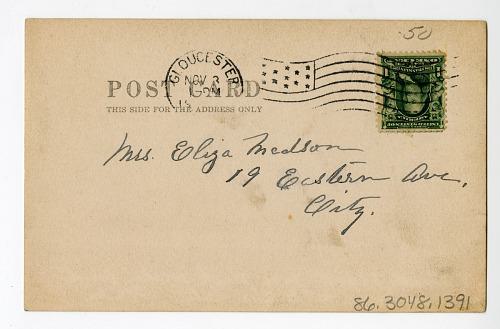 .50
GLOUCESTER
NOV 3
POST CARD
THIS SIDE FOR THE ADDRESS ONLY
Mrs. Eliza Madson
19 Eastern Ave.
City.
86.3048.1391